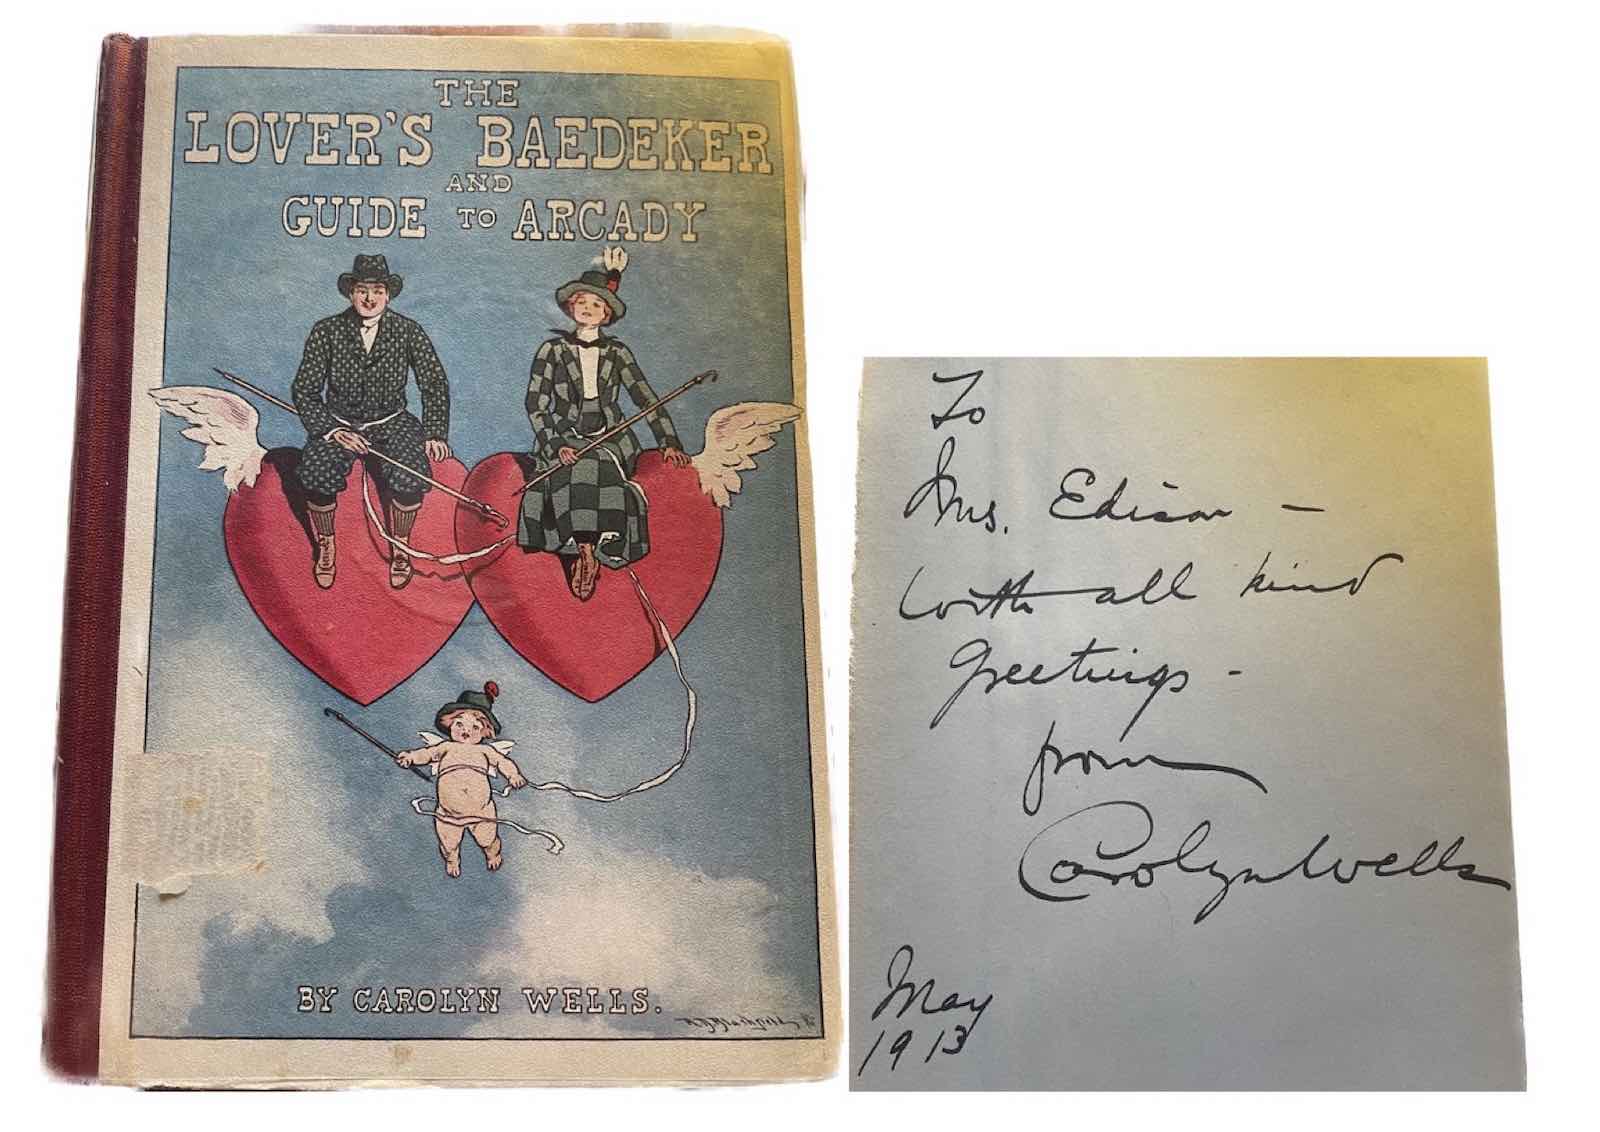 THE
LOVER'S BAEDEKER
AND
GUIDE TO ARCADY
BY CAROLYN WELLS.
To
Mrs. Edison -
with all kind
greetings -
from
Carolyn Wells
May
1913